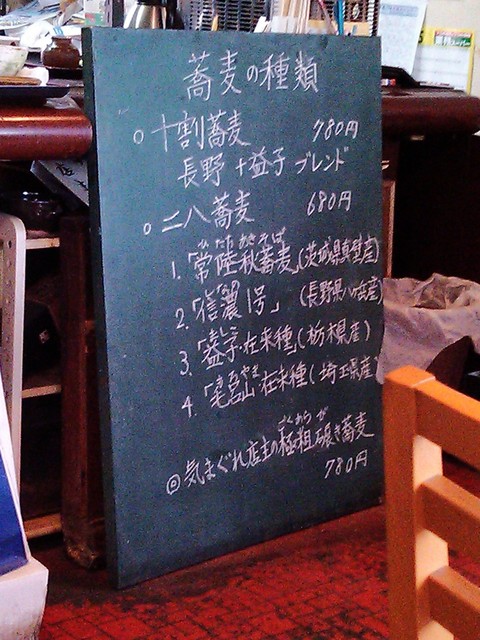 蕎麦の種類
○十割蕎麦 780円
長野+益子ブレンド
○二八蕎麦 680円
ひたちあきそば
1.「常陸秋蕎麦」(茨城県真壁産)
2.「信濃1号」(長野県八ヶ岳産)
ましこ
3.「益子」在来種(栃木県産)
4.「毛呂山」在来種(埼玉県産)
ごくあらび
◎気まぐれ店主の極粗碾き蕎麦
780円